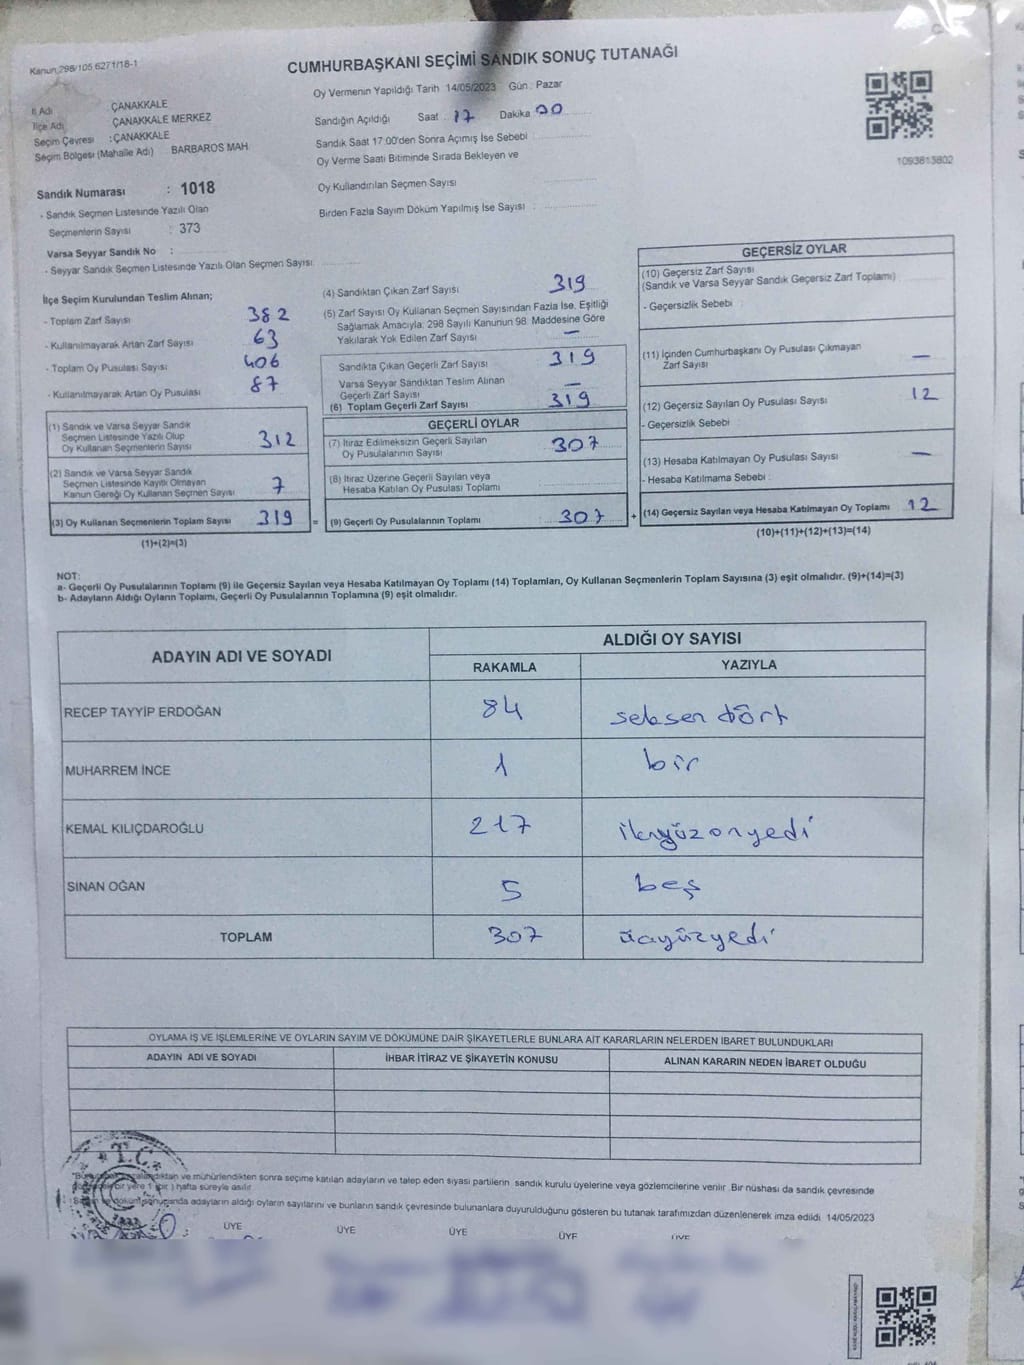 Kanun 298/105 6271/18-1
CUMHURBAŞKANI SEÇİMİ SANDIK SONUÇ TUTANAĞI
İl Adı ÇANAKKALE
İlçe Adı ÇANAKKALE MERKEZ
Seçim Çevresi : ÇANAKKALE
Seçim Bölgesi (Mahalle Adı) BARBAROS MAH.
Oy Vermenin Yapıldığı Tarih 14/05/2023 Gün : Pazar
Sandığın Açıldığı Saat 17 Dakika 00
Sandık Saat 17:00'den Sonra Açımış İse Sebebi
Oy Verme Saati Bitiminde Sırada Bekleyen ve
Oy Kullandırılan Seçmen Sayısı
Birden Fazla Sayım Döküm Yapılmış İse Sayısı :
1093813802
Sandık Numarası : 1018
- Sandık Seçmen Listesinde Yazılı Olan
Seçmenlerin Sayısı : 373
Varsa Seyyar Sandık No :
- Seyyar Sandık Seçmen Listesinde Yazılı Olan Seçmen Sayısı
İlçe Seçim Kurulundan Teslim Alınan;
- Toplam Zarf Sayısı 382
- Kullanılmayarak Artan Zarf Sayısı 63
- Toplam Oy Pusulası Sayısı 406
- Kullanılmayarak Artan Oy Pusulası 87
(1) Sandık ve Varsa Seyyar Sandık
Seçmen Listesinde Yazılı Olup
Oy Kullanan Seçmenlerin Sayısı 312
(2) Sandık ve Varsa Seyyar Sandık
Seçmen Listesinde Kayıtlı Olmayan
Kanun Gereği Oy Kullanan Seçmen Sayısı 7
(3) Oy Kullanan Seçmenlerin Toplam Sayısı 319 =
(1)+(2)=(3)
(4) Sandıktan Çıkan Zarf Sayısı 319
(5) Zarf Sayısı Oy Kullanan Seçmen Sayısından Fazla İse, Eşitliği
Sağlamak Amacıyla, 298 Sayılı Kanunun 98. Maddesine Göre
Yakılarak Yok Edilen Zarf Sayısı —
Sandıkta Çıkan Geçerli Zarf Sayısı 319
Varsa Seyyar Sandıktan Teslim Alınan
Geçerli Zarf Sayısı —
(6) Toplam Geçerli Zarf Sayısı 319
GEÇERLİ OYLAR
(7) İtiraz Edilmeksizin Geçerli Sayılan
Oy Pusulalarının Sayısı 307
(8) İtiraz Üzerine Geçerli Sayılan veya
Hesaba Katılan Oy Pusulası Toplamı
(9) Geçerli Oy Pusulalarının Toplamı 307 +
GEÇERSİZ OYLAR
(10) Geçersiz Zarf Sayısı
(Sandık ve Varsa Seyyar Sandık Geçersiz Zarf Toplamı)
- Geçersizlik Sebebi :
(11) İçinden Cumhurbaşkanı Oy Pusulası Çıkmayan
Zarf Sayısı —
(12) Geçersiz Sayılan Oy Pusulası Sayısı 12
- Geçersizlik Sebebi
(13) Hesaba Katılmayan Oy Pusulası Sayısı —
- Hesaba Katılmama Sebebi :
(14) Geçersiz Sayılan veya Hesaba Katılmayan Oy Toplamı 12
(10)+(11)+(12)+(13)=(14)
NOT:
a- Geçerli Oy Pusulalarının Toplamı (9) ile Geçersiz Sayılan veya Hesaba Katılmayan Oy Toplamı (14) Toplamları, Oy Kullanan Seçmenlerin Toplam Sayısına (3) eşit olmalıdır. (9)+(14)=(3)
b- Adayların Aldığı Oyların Toplamı, Geçerli Oy Pusulalarının Toplamına (9) eşit olmalıdır.
ADAYIN ADI VE SOYADI
ALDIĞI OY SAYISI
RAKAMLA YAZIYLA
RECEP TAYYİP ERDOĞAN 84 seksen dört
MUHARREM İNCE 1 bir
KEMAL KILIÇDAROĞLU 217 ikiyüzonyedi
SİNAN OĞAN 5 beş
TOPLAM 307 üçyüzyedi
OYLAMA İŞ VE İŞLEMLERİNE VE OYLARIN SAYIM VE DÖKÜMÜNE DAİR ŞİKAYETLERLE BUNLARA AİT KARARLARIN NELERDEN İBARET BULUNDUKLARI
ADAYIN ADI VE SOYADI İHBAR İTİRAZ VE ŞİKAYETİN KONUSU ALINAN KARARIN NEDEN İBARET OLDUĞU
T.C.
ve mühürlendikten sonra seçime katılan adayların ve talep eden siyasi partilerin sandık kurulu üyelerine veya gözlemcilerine verilir. Bir nüshası da sandık çevresinde
bir yere 1 (bir) hafta süreyle asılır
adayların aldığı oyların sayılarını ve bunların sandık çevresinde bulunanlara duyurulduğunu gösteren bu tutanak tarafımızdan düzenlenerek imza edildi 14/05/2023
ÜYE ÜYE ÜYE ÜYE ÜYE